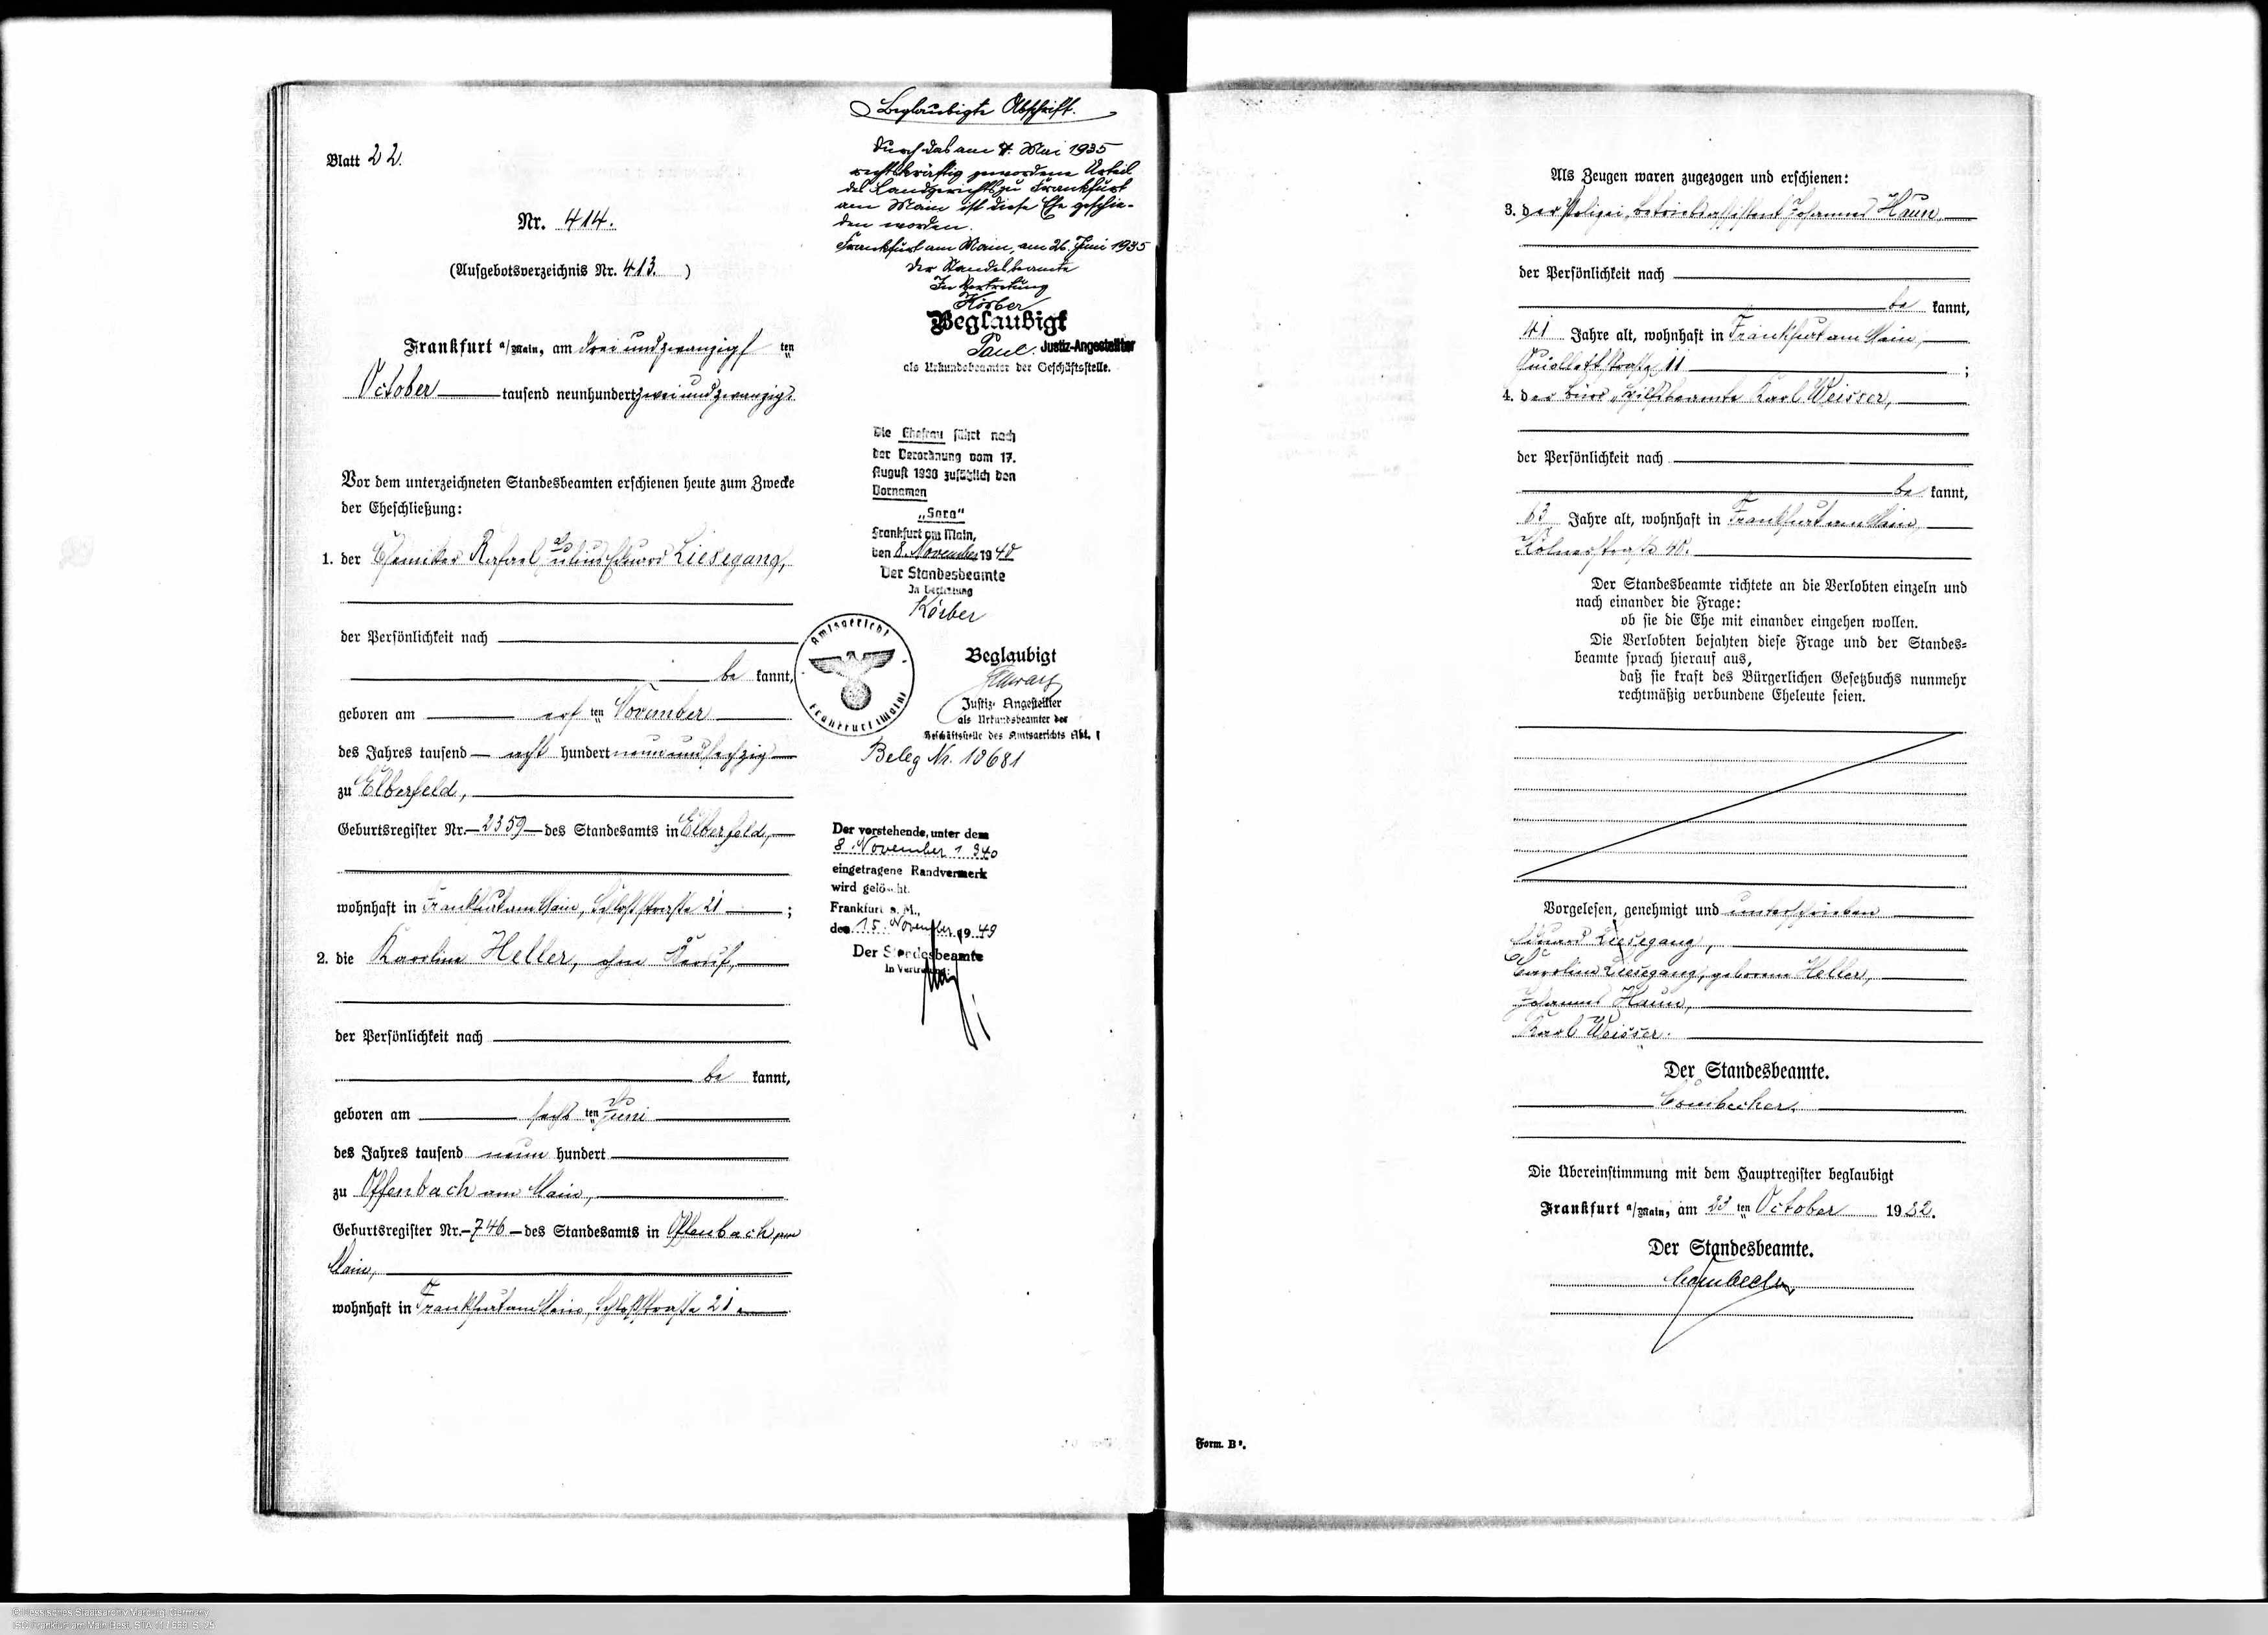 Blatt 22.
Nr. 414.
(Aufgebotsverzeichnis Nr. 413. )
Frankfurt a/Main, am drei und zwanzigs ten
October tausend neunhundert zwei und zwanzig.
Vor dem unterzeichneten Standesbeamten erschienen heute zum Zwecke
der Eheschließung:
1. der Chemiker Rafael Julius Eduard Liesegang,
der Persönlichkeit nach
be kannt,
geboren am ersten November
des Jahres tausend acht hundert neun und sechzig
zu Elberfeld,
Geburtsregister Nr. 2359 des Standesamts in Elberfeld,
wohnhaft in Frankfurt am Main, Schloßstraße 21 ;
2. die Karoline Heller, ohne Beruf,
der Persönlichkeit nach
be kannt,
geboren am sechs ten Juni
des Jahres tausend neun hundert
zu Offenbach am Main,
Geburtsregister Nr. 746 des Standesamts in Offenbach am
Main,
wohnhaft in Frankfurt am Main, Schloßstraße 21
Beglaubigte Abschrift.
Durch das am 4. Mai 1935
rechtskräftig gewordene Urteil
des Landgerichts zu Frankfurt
am Main ist diese Ehe geschie-
den worden.
Frankfurt am Main, am 26. Juni 1935
Der Standesbeamte
In Vertretung
Körber
Beglaubigt
Paul. Justiz-Angestellter
als Urkundsbeamter der Geschäftsstelle.
Die Ehefrau führt nach
der Verordnung vom 17.
August 1938 zusätzlich den
Vornamen
„Sara“
Frankfurt am Main,
den 8. November 1940
Der Standesbeamte
In Vertretung
Körber
Amtsgericht
Frankfurt (Main)
Beglaubigt
Justiz-Angestellter
als Urkundsbeamter der
Geschäftsstelle des Amtsgerichts Abt. 1
Beleg Nr. 10681
Der vorstehende, unter dem
8. November 1940
eingetragene Randvermerk
wird gelöscht.
Frankfurt a. M.,
den 15. November 1949
Der Standesbeamte
In Vertretung:
Als Zeugen waren zugezogen und erschienen:
3. der Polizei-Betriebsassistent Johannes Haun
der Persönlichkeit nach
be kannt,
41 Jahre alt, wohnhaft in Frankfurt am Main,
11 ;
4. der Büro-Hilfsbeamte Karl Weisser,
der Persönlichkeit nach
be kannt,
63 Jahre alt, wohnhaft in Frankfurt am Main,
Kölnerstraße 40.
Der Standesbeamte richtete an die Verlobten einzeln und
nach einander die Frage:
ob sie die Ehe mit einander eingehen wollen.
Die Verlobten bejahten diese Frage und der Standes-
beamte sprach hierauf aus,
daß sie kraft des Bürgerlichen Gesetzbuchs nunmehr
rechtmäßig verbundene Eheleute seien.
Vorgelesen, genehmigt und unterschrieben
Eduard Liesegang,
Karoline Liesegang, geborene Heller,
Johannes Haun,
Karl Weisser.
Der Standesbeamte.
Die Übereinstimmung mit dem Hauptregister beglaubigt
Frankfurt a/Main, am 23 ten October 1922.
Der Standesbeamte.
Form. B
© Hessisches Staatsarchiv Marburg, Germany